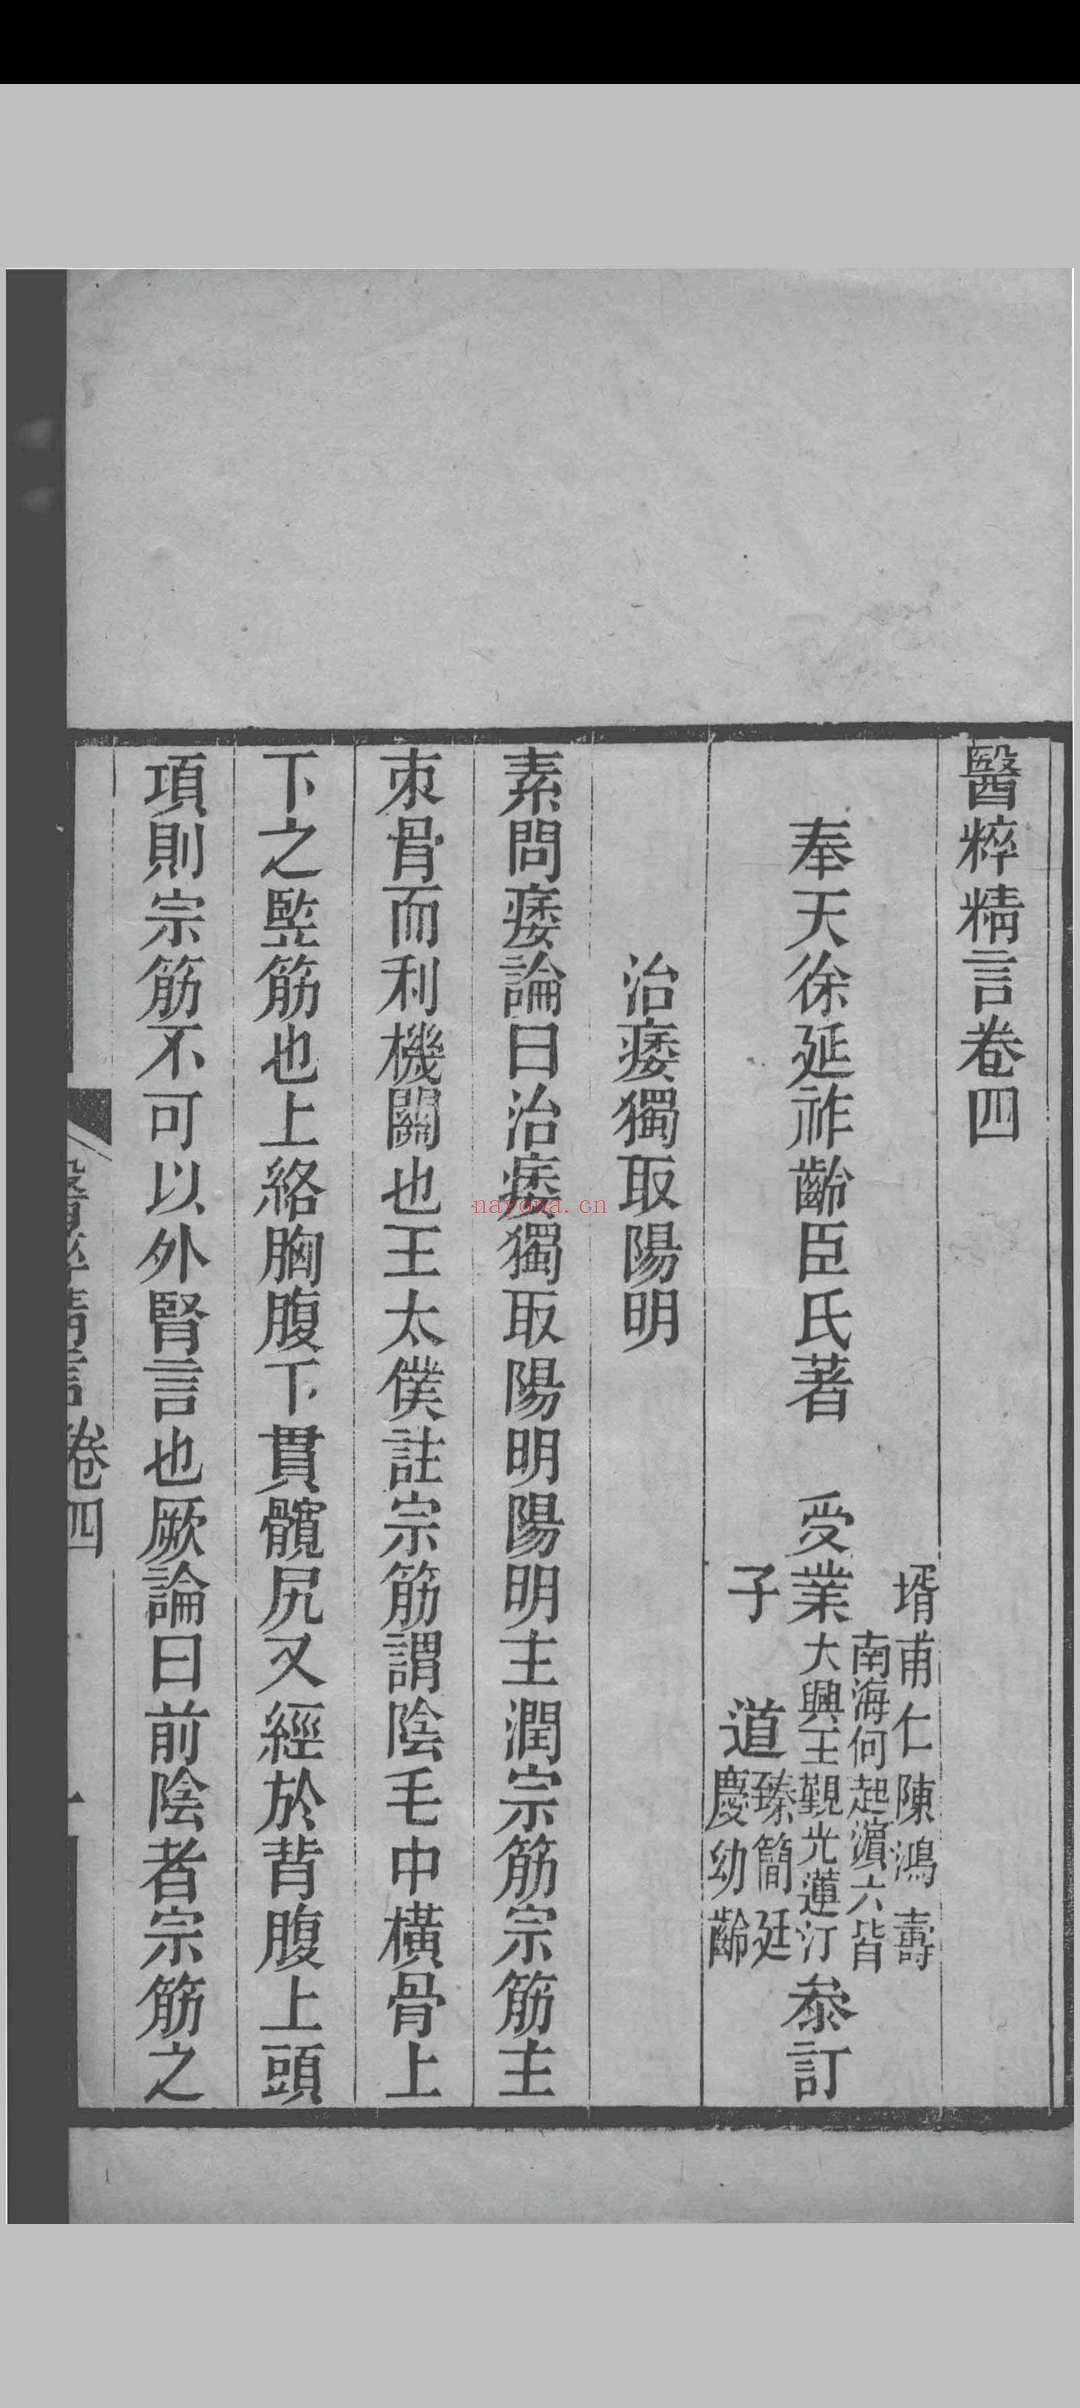 醫粹精言卷四
奉天徐延祚齡臣氏著
壻甫仁陳鴻壽
受業
南海何起瀛六皆
大興王覲光蓮汀
子
道
臻簡廷
慶幼齡
叅訂
治痿獨取陽明
素問痿論曰治痿獨取陽明陽明主潤宗筋宗筋主
朿骨而利機關也王太僕註宗筋謂陰毛中橫骨上
下之竪筋也上絡胸腹下貫髖尻又經於背腹上頭
項則宗筋不可以外腎言也厥論曰前陰者宗筋之
醫粹精言卷四
一
nayona.cn